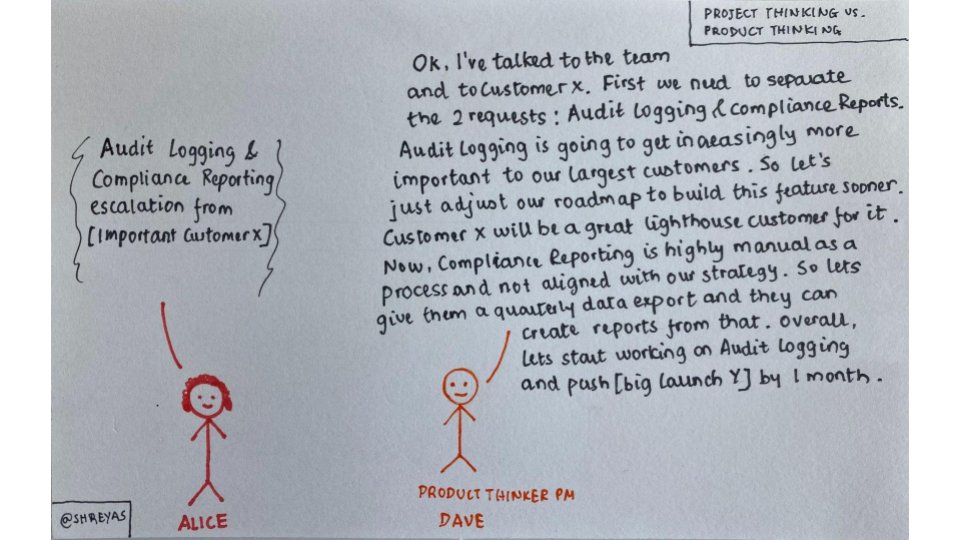 PROJECT THINKING VS.
PRODUCT THINKING
Audit Logging &
Compliance Reporting
escalation from
[Important Customer X]
Ok, I've talked to the team
and to Customer X. First we need to separate
the 2 requests: Audit Logging & Compliance Reports.
Audit Logging is going to get increasingly more
important to our largest customers. So let's
just adjust our roadmap to build this feature sooner.
Customer X will be a great lighthouse customer for it.
Now, Compliance Reporting is highly manual as a
process and not aligned with our strategy. So lets
give them a quarterly data export and they can
create reports from that. Overall,
lets start working on Audit Logging
and push [big launch Y] by 1 month.
ALICE
PRODUCT THINKER PM
DAVE
@SHREYAS